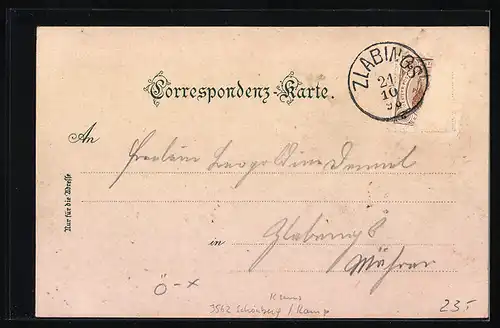 Correspondenz-Karte.
ZLABINGS
21
10
An
Fräulein Leopoldine
Nur für die Adresse
in Zlabings
Mähren
Ö - x
Krems
3562 Schönberg / Kamp
23.-